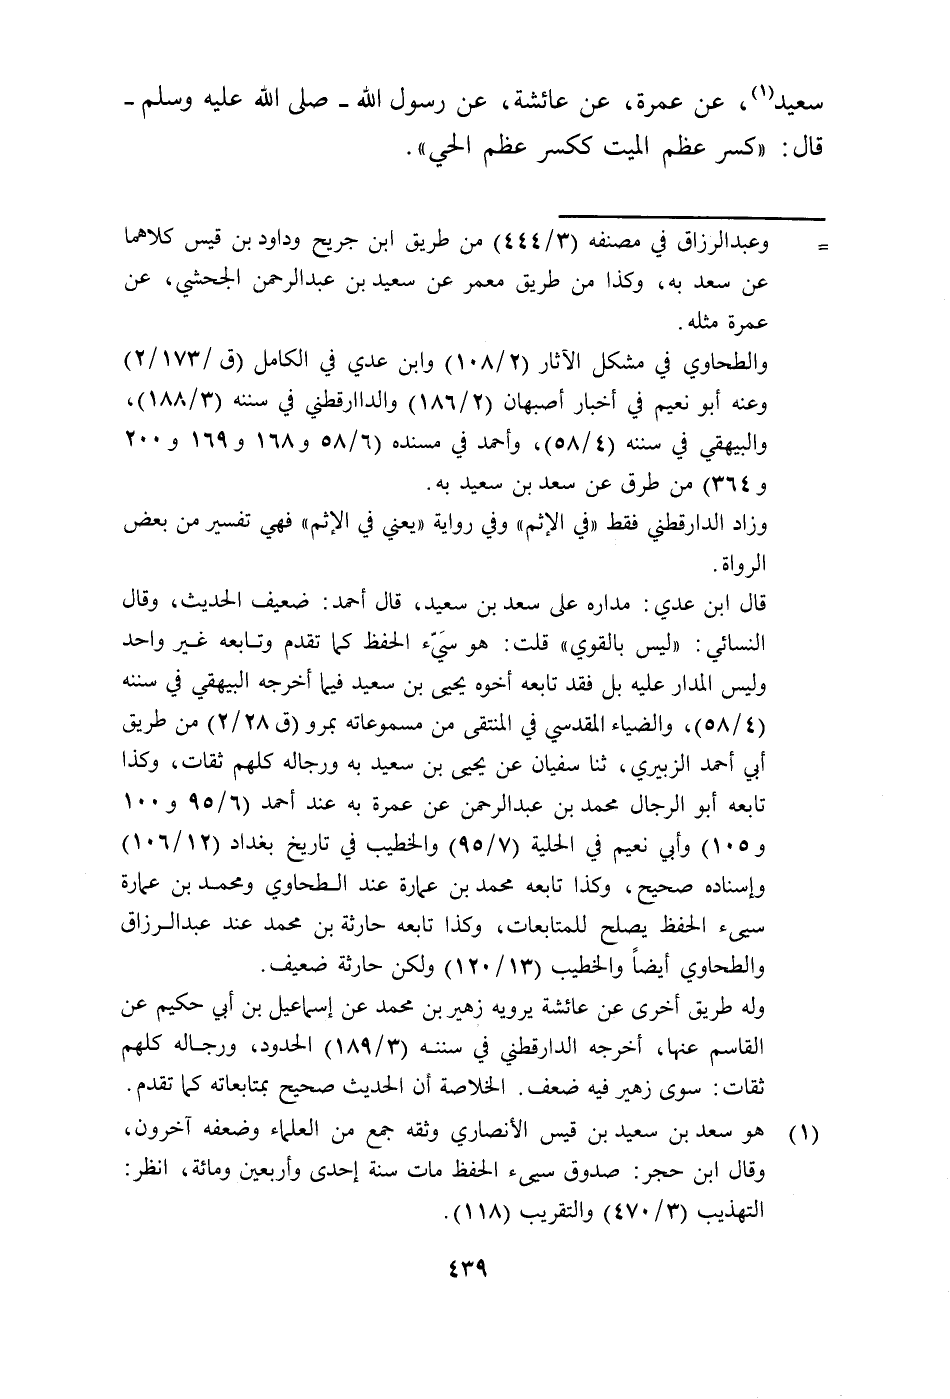 سعيد(١)، عن عمرة، عن عائشة، عن رسول الله ـ صلى الله عليه وسلم ـ
قال: «كسر عظم الميت ككسر عظم الحي».
= وعبدالرزاق في مصنفه (٣/٤٤٤) من طريق ابن جريح وداود بن قيس كلاهما
عن سعد به، وكذا من طريق معمر عن سعيد بن عبدالرحمن الجحشي، عن
عمرة مثله.
والطحاوي في مشكل الآثار (٢/١٠٨) وابن عدي في الكامل (ق/١٧٣/٢)
وعنه أبو نعيم في أخبار أصبهان (٢/١٨٦) والداارقطني في سننه (٣/١٨٨)،
والبيهقي في سننه (٤/٥٨)، وأحمد في مسنده (٦/٥٨ و١٦٨ و١٦٩ و٢٠٠
و٣٦٤) من طرق عن سعد بن سعيد به.
وزاد الدارقطني فقط «في الإثم» وفي رواية «يعني في الإثم» فهي تفسير من بعض
الرواة.
قال ابن عدي: مداره على سعد بن سعيد، قال أحمد: ضعيف الحديث، وقال
النسائي: «ليس بالقوي» قلت: هو سيَّء الحفظ كما تقدم وتابعه غير واحد
وليس المدار عليه بل فقد تابعه أخوه يحيى بن سعيد فيما أخرجه البيهقي في سننه
(٤/٥٨)، والضياء المقدسي في المنتقى من مسموعاته بمرو (ق ٢/٢٨) من طريق
أبي أحمد الزبيري، ثنا سفيان عن يحيى بن سعيد به ورجاله كلهم ثقات، وكذا
تابعه أبو الرجال محمد بن عبدالرحمن عن عمرة به عند أحمد (٦/٩٥ و١٠٠
و١٠٥) وأبي نعيم في الحلية (٧/٩٥) والخطيب في تاريخ بغداد (١٢/١٠٦)
وإسناده صحيح، وكذا تابعه محمد بن عمارة عند الطحاوي ومحمد بن عمارة
سيىء الحفظ يصلح للمتابعات، وكذا تابعه حارثة بن محمد عند عبدالرزاق
والطحاوي أيضاً والخطيب (١٣/١٢٠) ولكن حارثة ضعيف.
وله طريق أخرى عن عائشة يرويه زهير بن محمد عن إسماعيل بن أبي حكيم عن
القاسم عنها، أخرجه الدارقطني في سننه (٣/١٨٩) الحدود، ورجاله كلهم
ثقات: سوى زهير فيه ضعف. الخلاصة أن الحديث صحيح بمتابعاته كما تقدم.
(١) هو سعد بن سعيد بن قيس الأنصاري وثقه جمع من العلماء وضعفه آخرون،
وقال ابن حجر: صدوق سيىء الحفظ مات سنة إحدى وأربعين ومائة، انظر:
التهذيب (٣/٤٧٠) والتقريب (١١٨).
٤٣٩